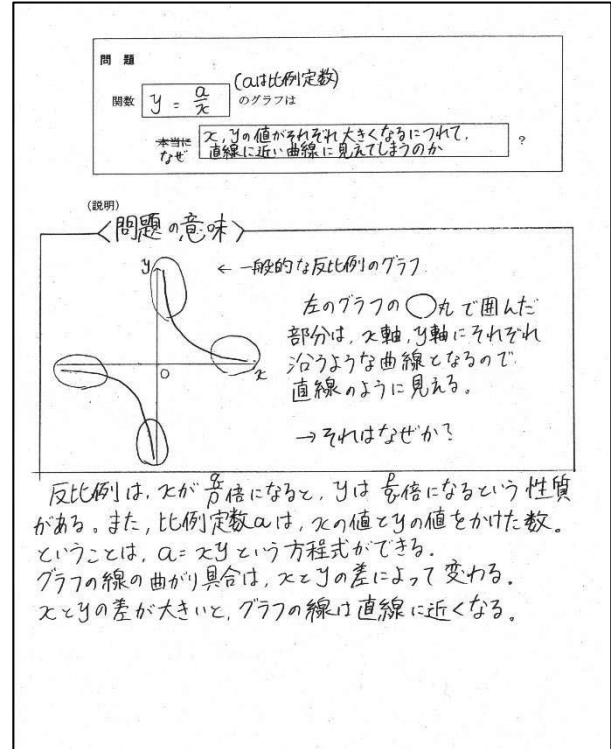 問 題
関数 y = a/x (aは比例定数) のグラフは
本当に x, yの値がそれぞれ大きくなるにつれて、
なぜ 直線に近い曲線に見えてしまうのか ?
(説明)
〈問題の意味〉
y ← 一般的な反比例のグラフ
左のグラフの○丸で囲んだ
部分は、x軸, y軸にそれぞれ
沿うような曲線となるので
直線のように見える。
O x
→それはなぜか?
反比例は、xが q/p倍になると、yは p/q倍になるという性質
がある。また、比例定数aは、xの値とyの値をかけた数。
ということは、a=xyという方程式ができる。
グラフの線の曲がり具合は、xとyの差によって変わる。
xとyの差が大きいと、グラフの線は直線に近くなる。